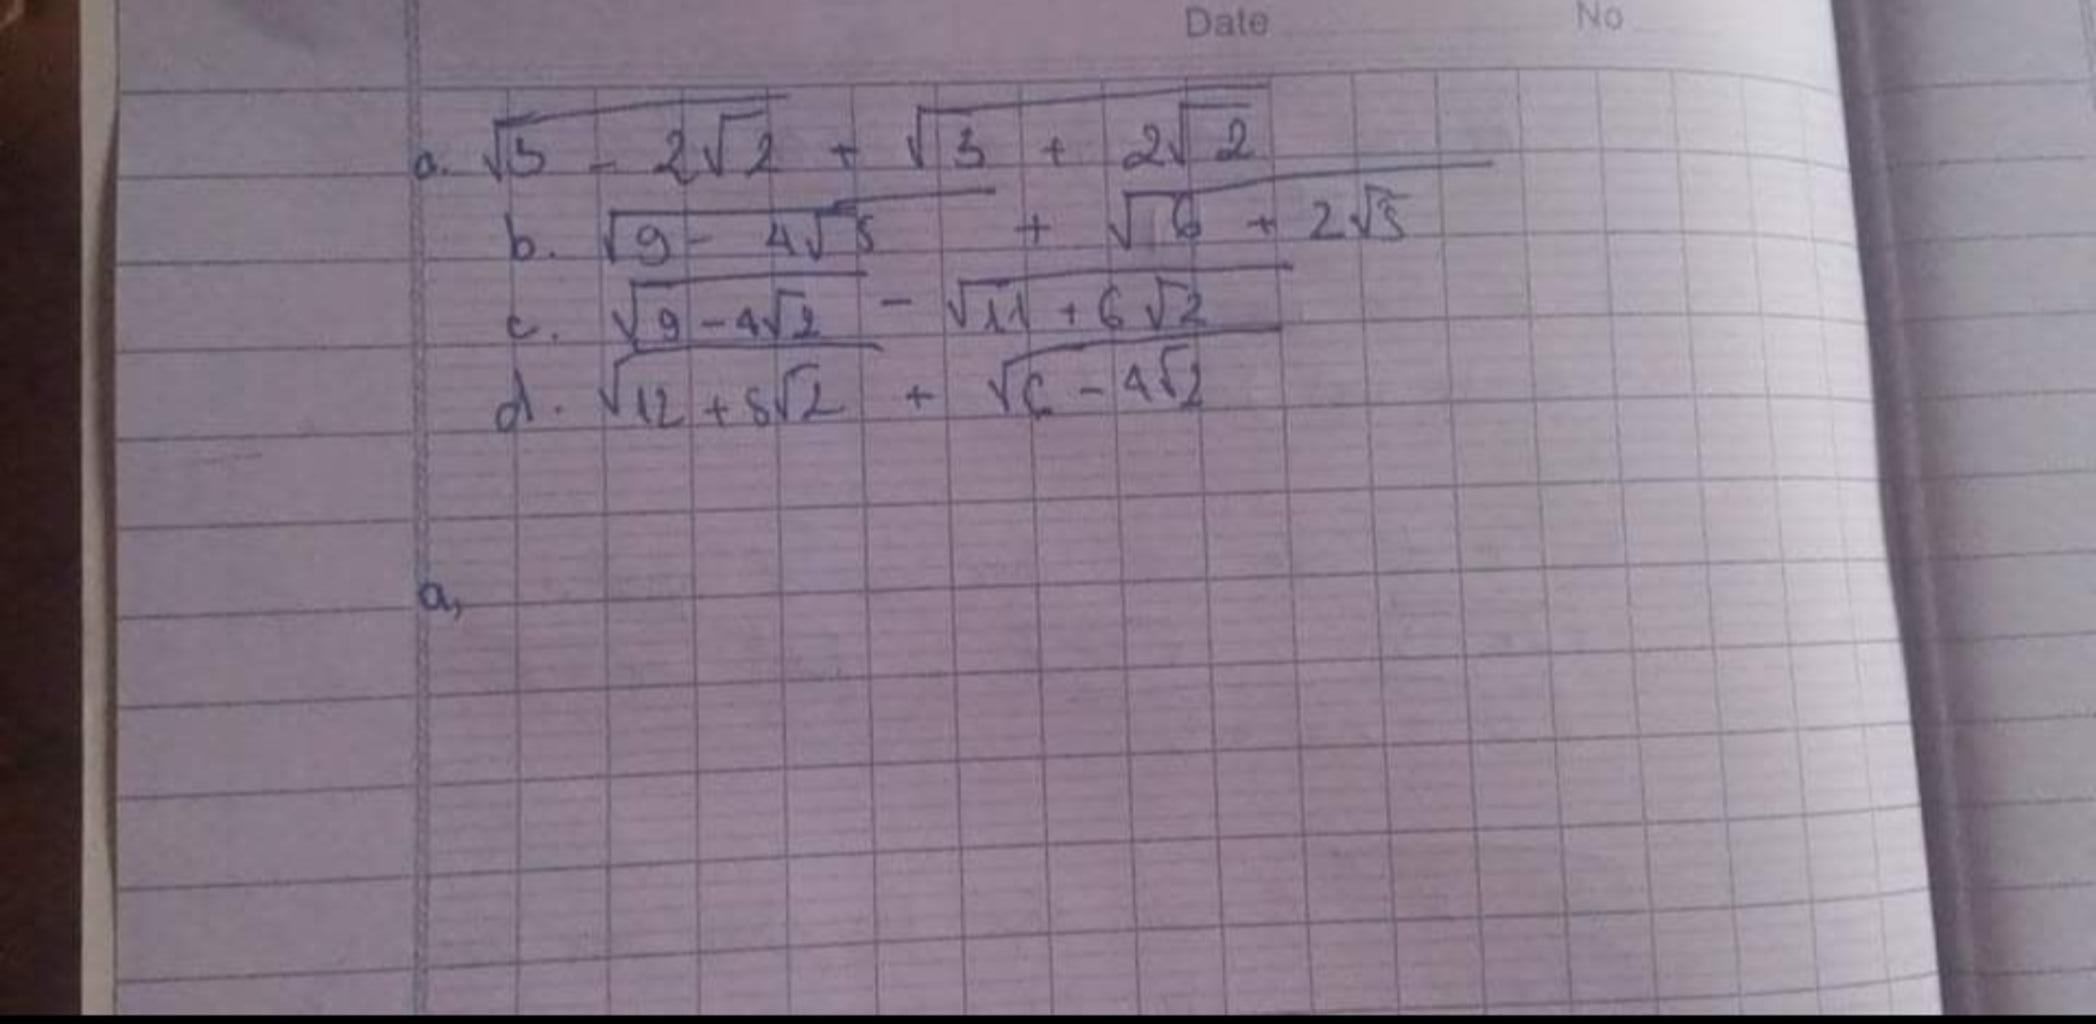 Date No
a. √3 - 2√2 + √3 + 2√2
b. √9 - 4√5 + √6 + 2√5
c. √9 - 4√2 - √11 + 6√2
d. √12 + 8√2 + √6 - 4√2
a,